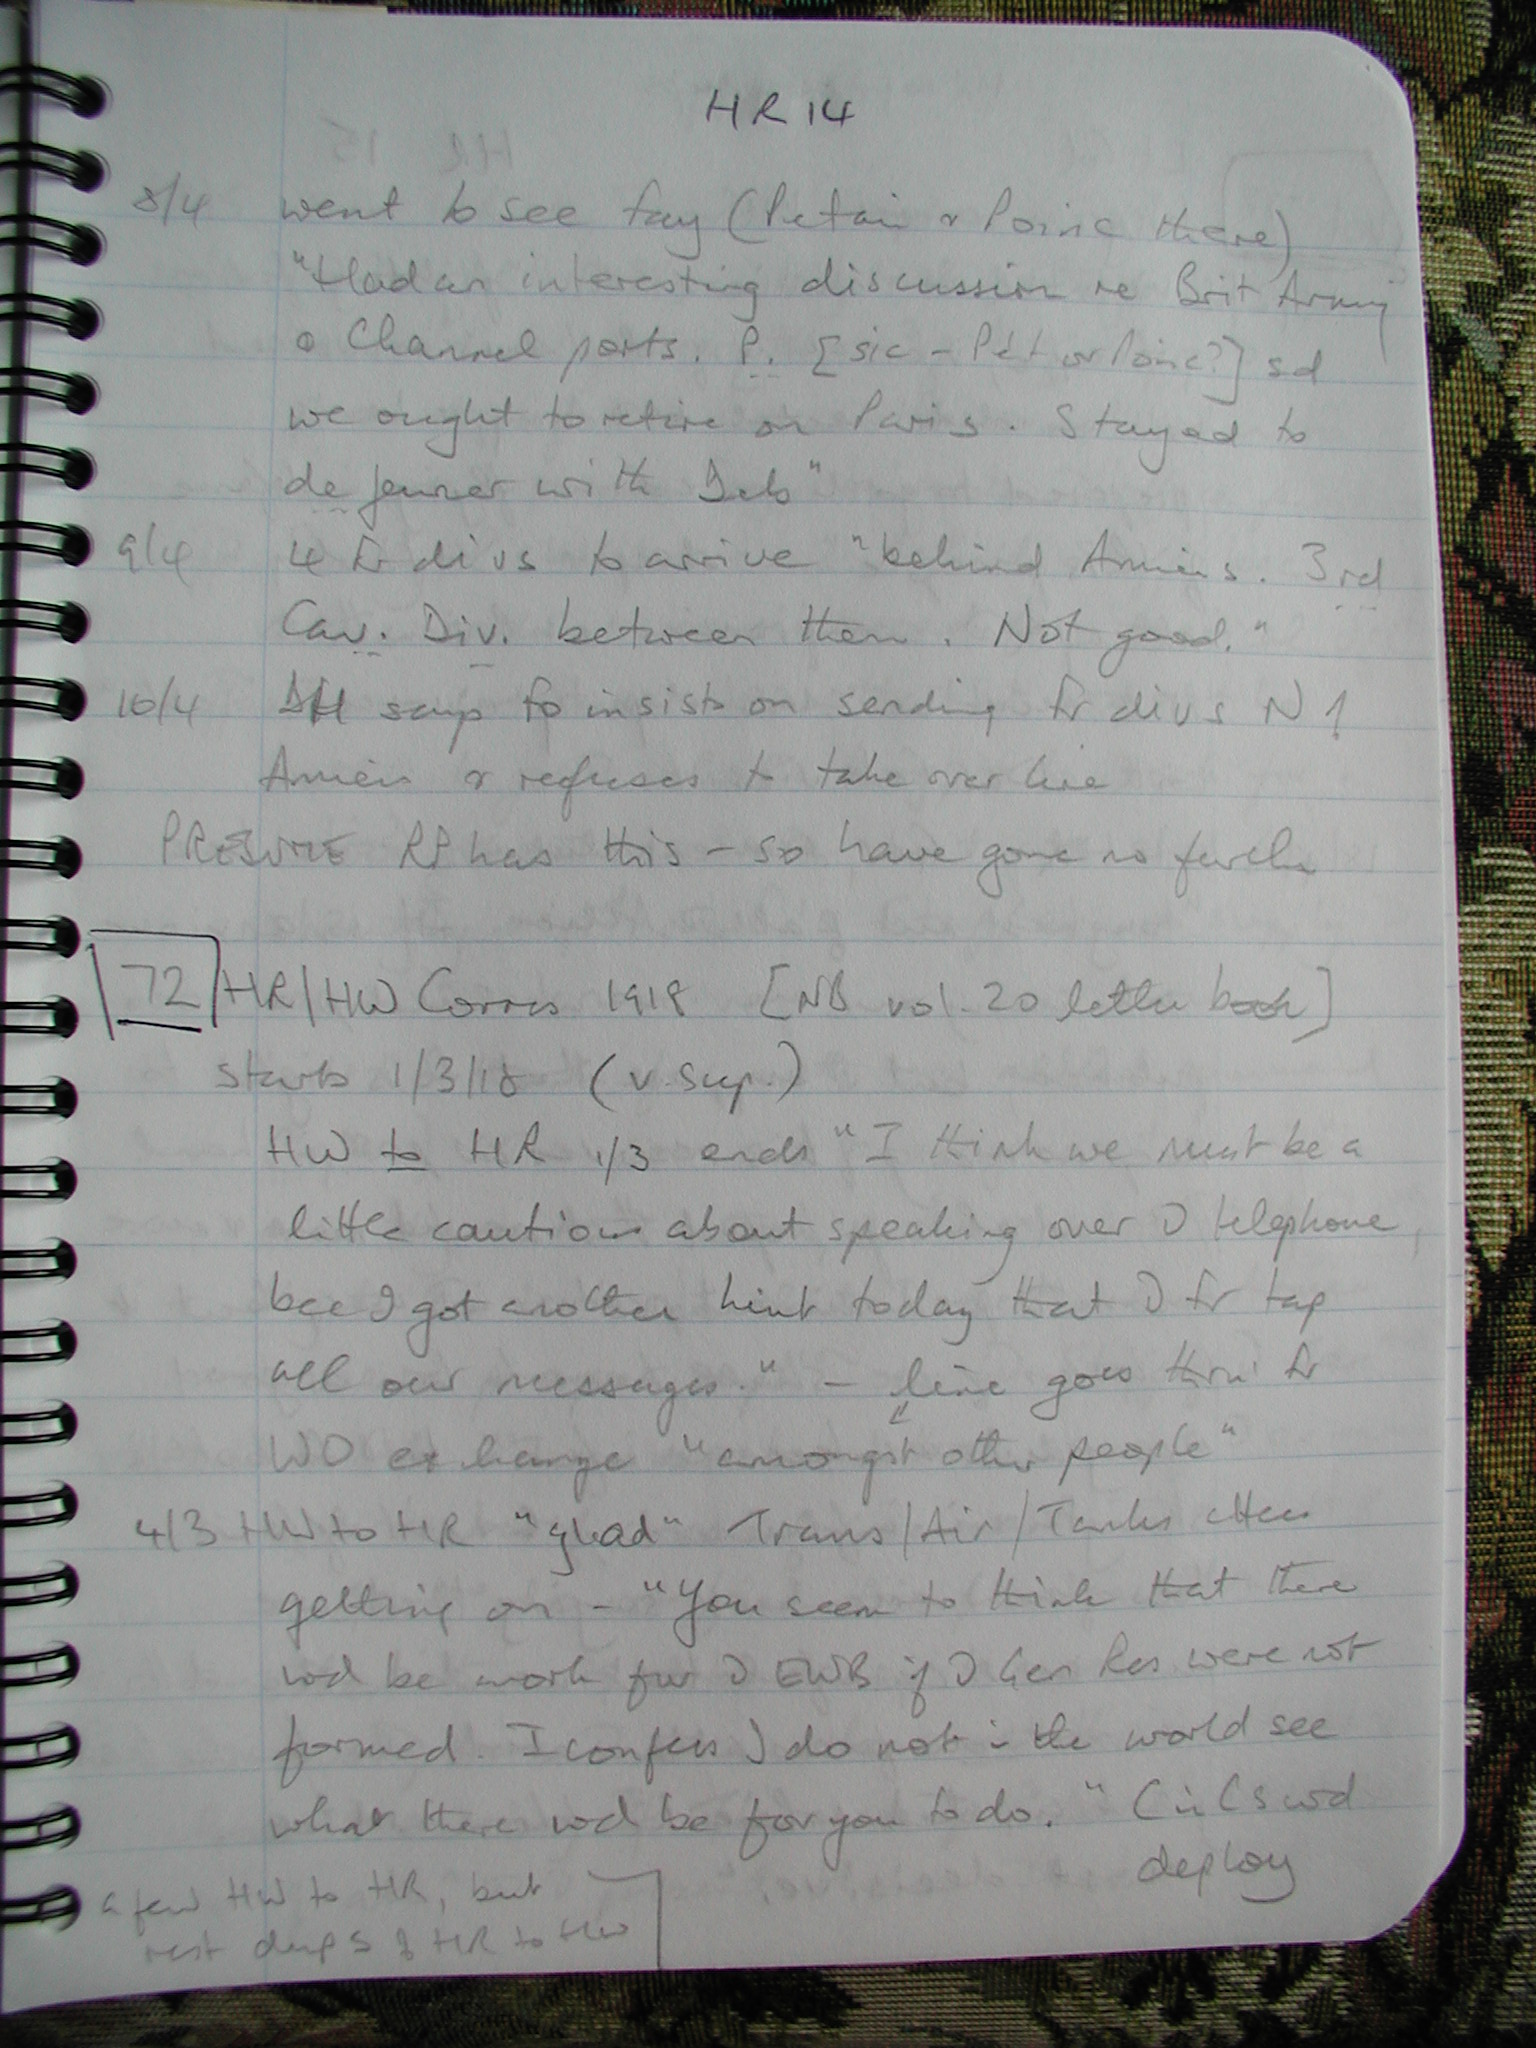 HR 14
8/4 went to see Fay (Petain & Poinc there)
"Had an interesting discussion re Brit Army
& Channel ports. P. [sic - Pet or Poinc?] sd
we ought to retire on Paris. Stayed to
dejeuner with Deb"
9/4 4 Fr divs to arrive "behind Amiens. 3rd
Cav. Div. between them. Not good."
10/4 DH says Fo insists on sending Fr divs N of
Amiens & refuses to take over line
PRESUME RP has this - so have gone no further
72 HR/HW Corres 1918 [NB vol. 20 letter book]
starts 1/3/18 (v. sup.)
HW to HR 1/3 ends "I think we must be a
little cautious about speaking over telephone,
bec I got another hint today that Fr tap
all our messages." - line goes thru' Fr
WO exchange "amongst other people"
4/3 HW to HR "glad" Trans/Air/Tanks cttees
getting on - "You seem to think that there
wd be work for EWB if Gen Res were not
formed. I confess I do not in the world see
what there wd be for you to do." CinCs wd
deploy
a few HW to HR, but
rest dups of HR to HW